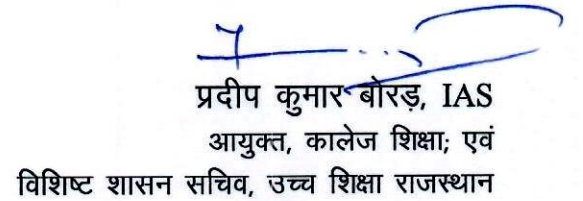 प्रदीप कुमार बोरड़, IAS
आयुक्त, कालेज शिक्षा; एवं
विशिष्ट शासन सचिव, उच्च शिक्षा राजस्थान